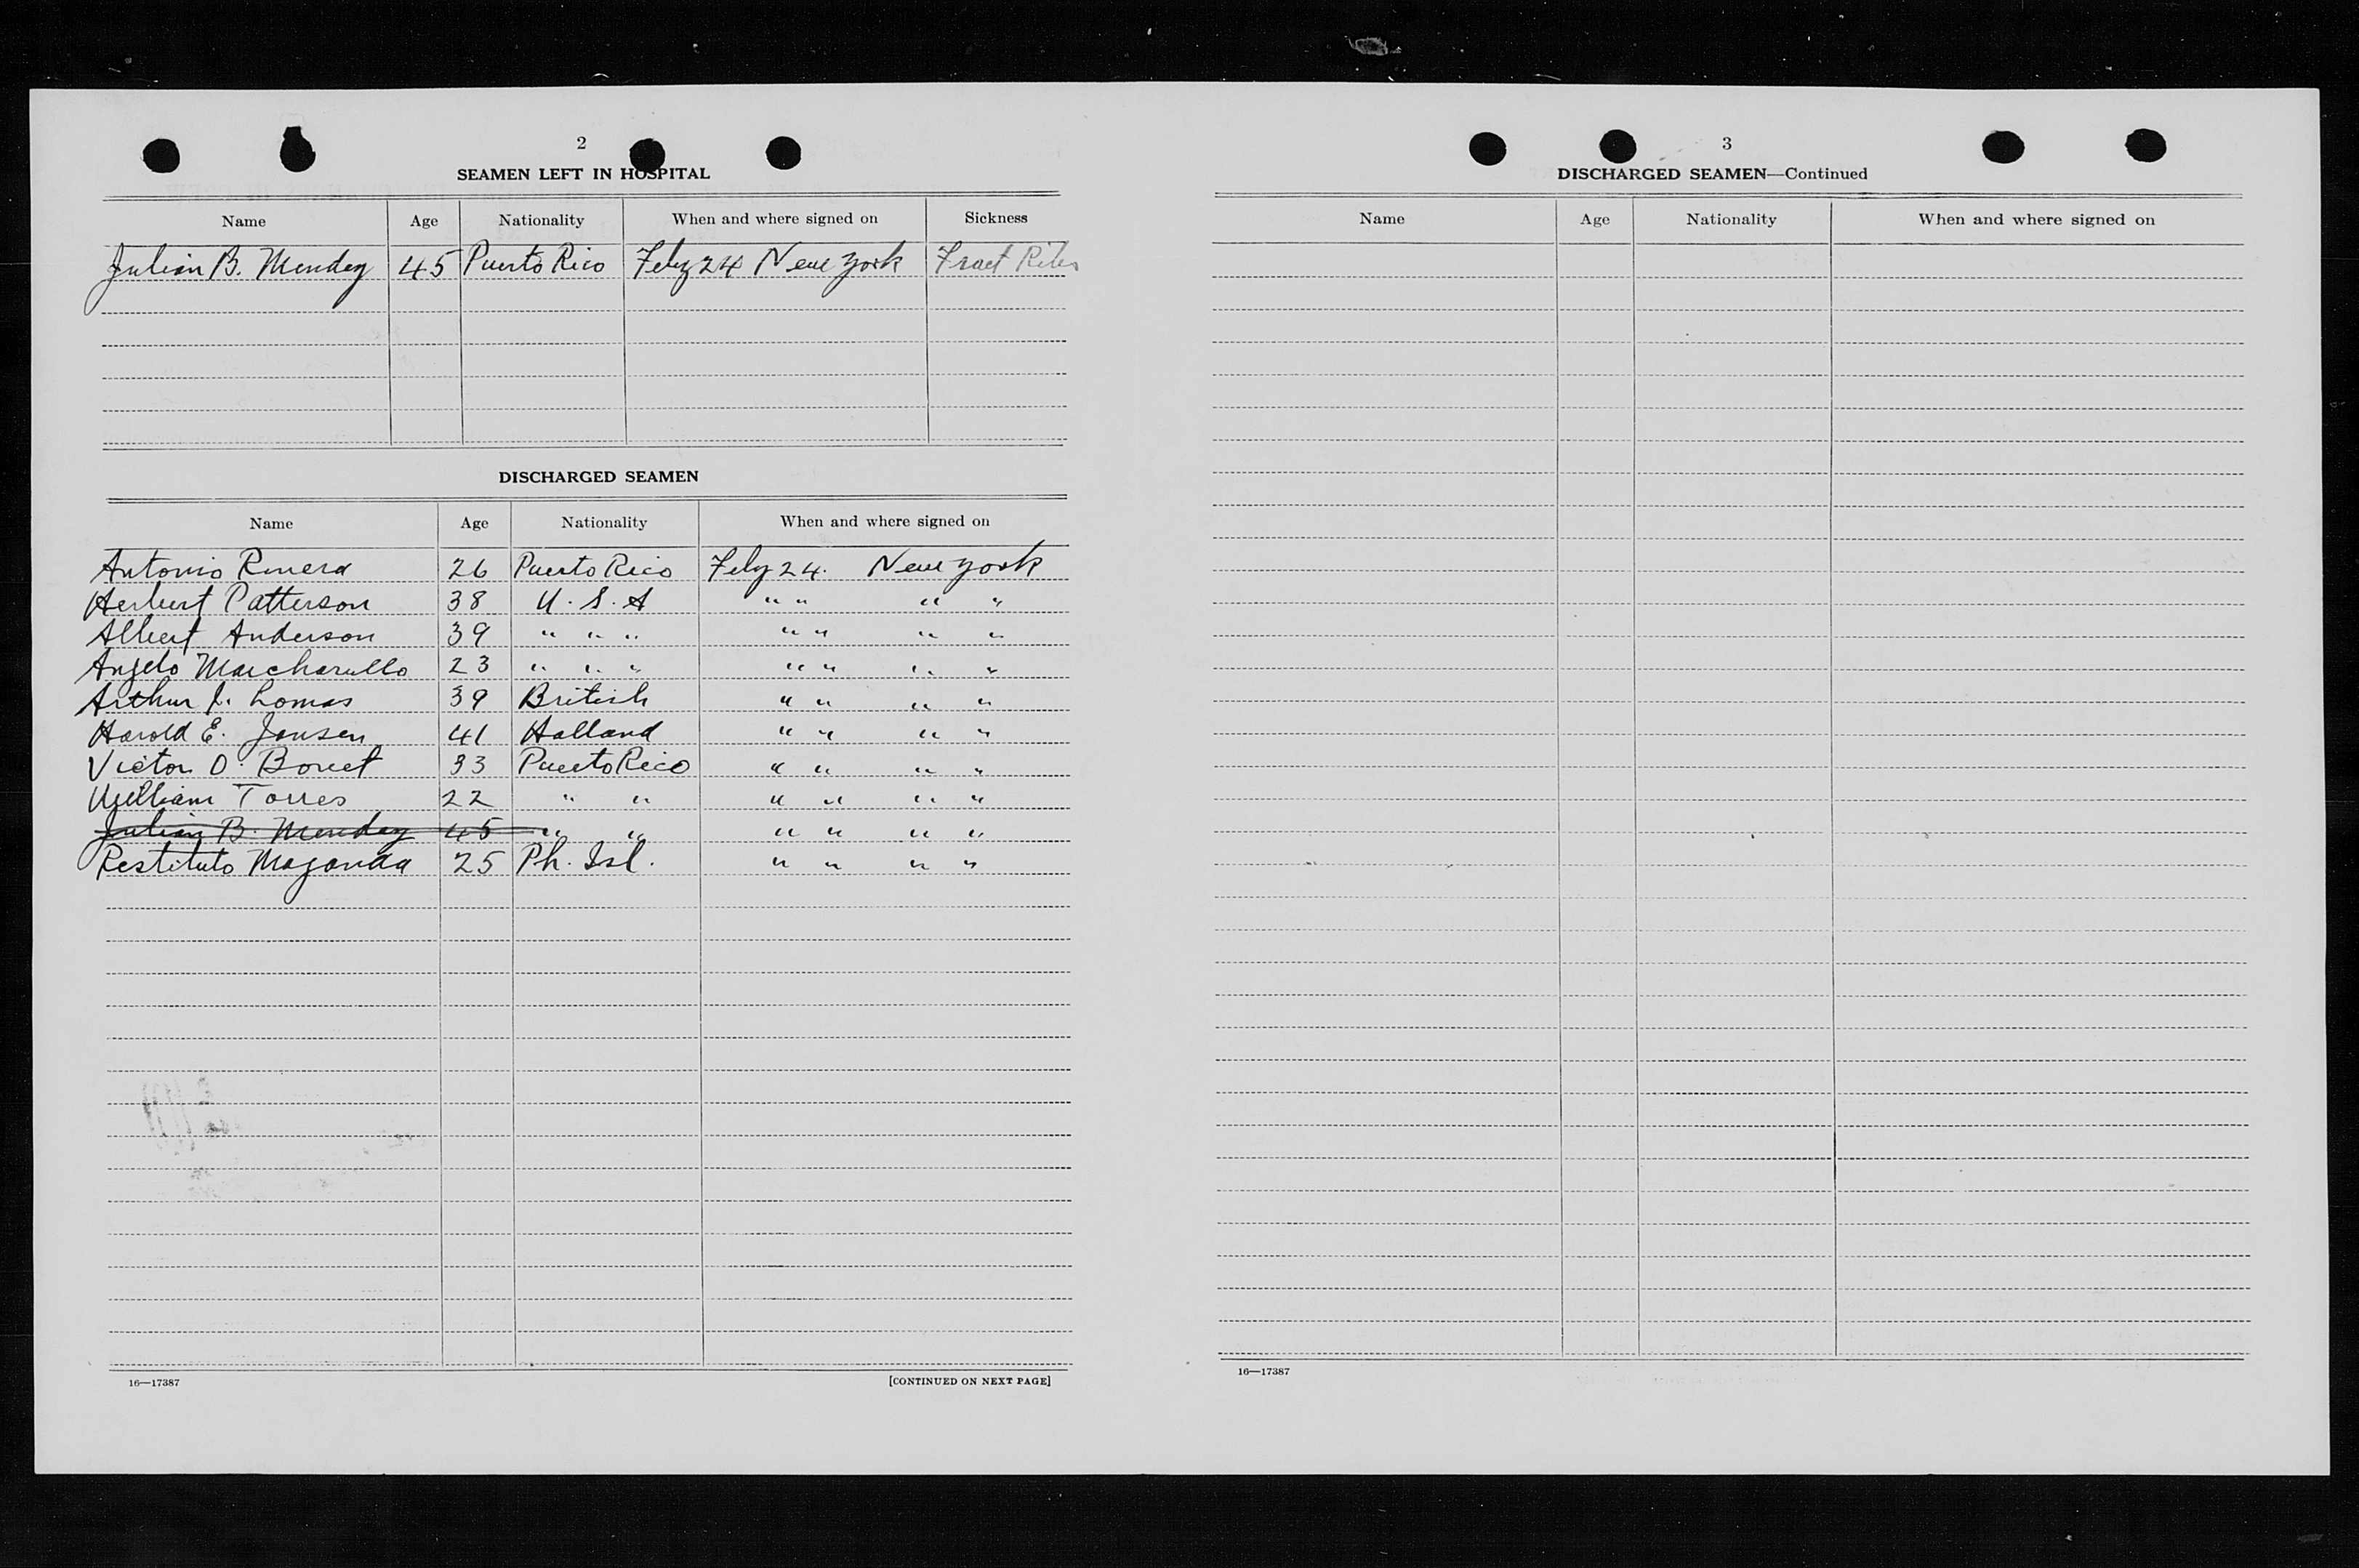 2
SEAMEN LEFT IN HOSPITAL
Name Age Nationality When and where signed on Sickness
Julian B. Mendez 45 Puerto Rico Feby 24 New York Fract Ribs
DISCHARGED SEAMEN
Name Age Nationality When and where signed on
Antonio Rivera 26 Puerto Rico Feby 24. New York
Herbert Patterson 38 U.S.A " " " "
Albert Anderson 39 " " " " " " "
Angelo 23 " " " " " " "
Arthur J. Lomas 39 British " " " "
Harold E. Jansen 41 Holland " " " "
Victor O. Bonet 33 Puerto Rico " " " "
William Torres 22 " " " " " "
Julian B. Mendez 45 " " " " " "
Restituto 25 Ph. Isl. " " " "
16—17387 [CONTINUED ON NEXT PAGE]
3
DISCHARGED SEAMEN—Continued
Name Age Nationality When and where signed on
16—17387